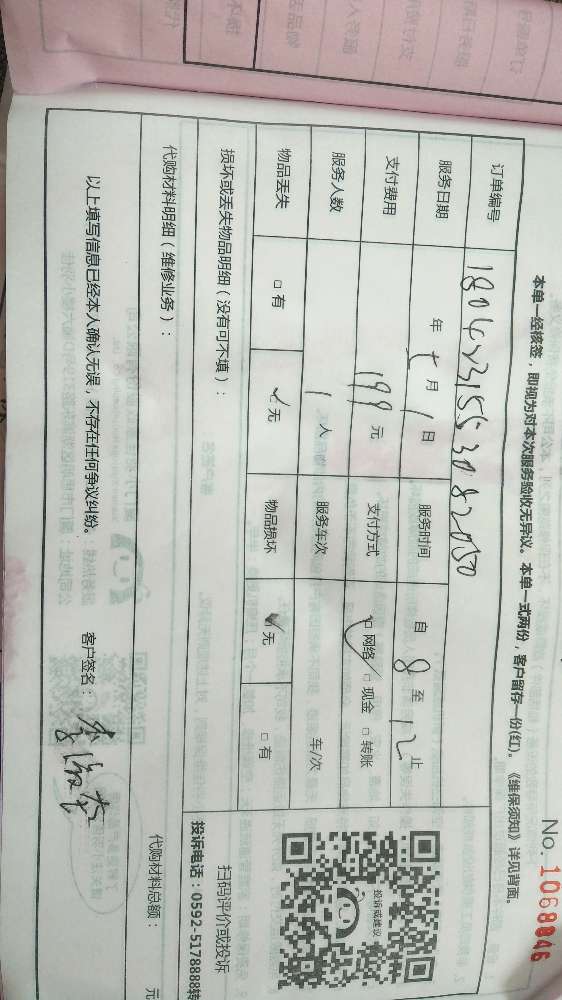 No. 1068846
本单一经核签，即视为对本次服务验收无异议。本单一式两份，客户留存一份(红)。《维保须知》详见背面。
订单编号 1804231553082050
服务日期 年 七 月 1 日 服务时间 自 8 至 12 止
支付费用 199 元 支付方式 ☑ 网络 □ 现金 □ 转账
服务人数 1 人 服务车次 车/次
物品丢失 □ 有 ☑ 无 物品损坏 ☑ 无 □ 有
损坏或丢失物品明细（没有可不填）：
代购材料明细（维修业务）：
代购材料总额： 元
以上填写信息已经本人确认无误，不存在任何争议纠纷。 客户签名：
投诉或建议
扫码评价或投诉
投诉电话：0592-5178888转